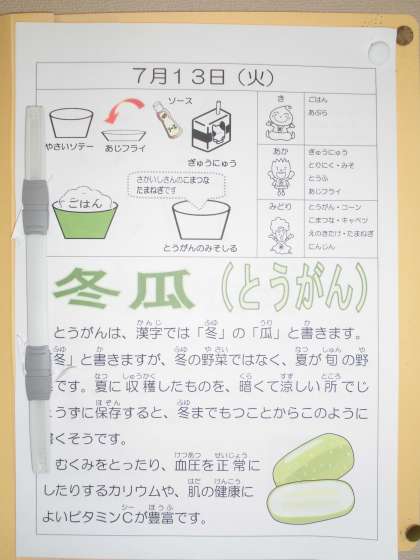 7月13日（火）
ソース
やさいソテー
あじフライ
ぎゅうにゅう
さかいしさんのこまつな
たまねぎです
ごはん
とうがんのみそしる
き
ごはん
あぶら
あか
ぎゅうにゅう
とりにく・みそ
とうふ
あじフライ
みどり
とうがん・コーン
こまつな・キャベツ
えのきたけ・たまねぎ
にんじん
冬瓜（とうがん）
とうがんは、漢字では「冬」の「瓜」と書きます。
冬」と書きますが、冬の野菜ではなく、夏が旬の野
です。夏に収穫したものを、暗くて涼しい所でじ
うずに保存すると、冬までもつことからこのように
書くそうです。
むくみをとったり、血圧を正常に
したりするカリウムや、肌の健康に
よいビタミンCが豊富です。